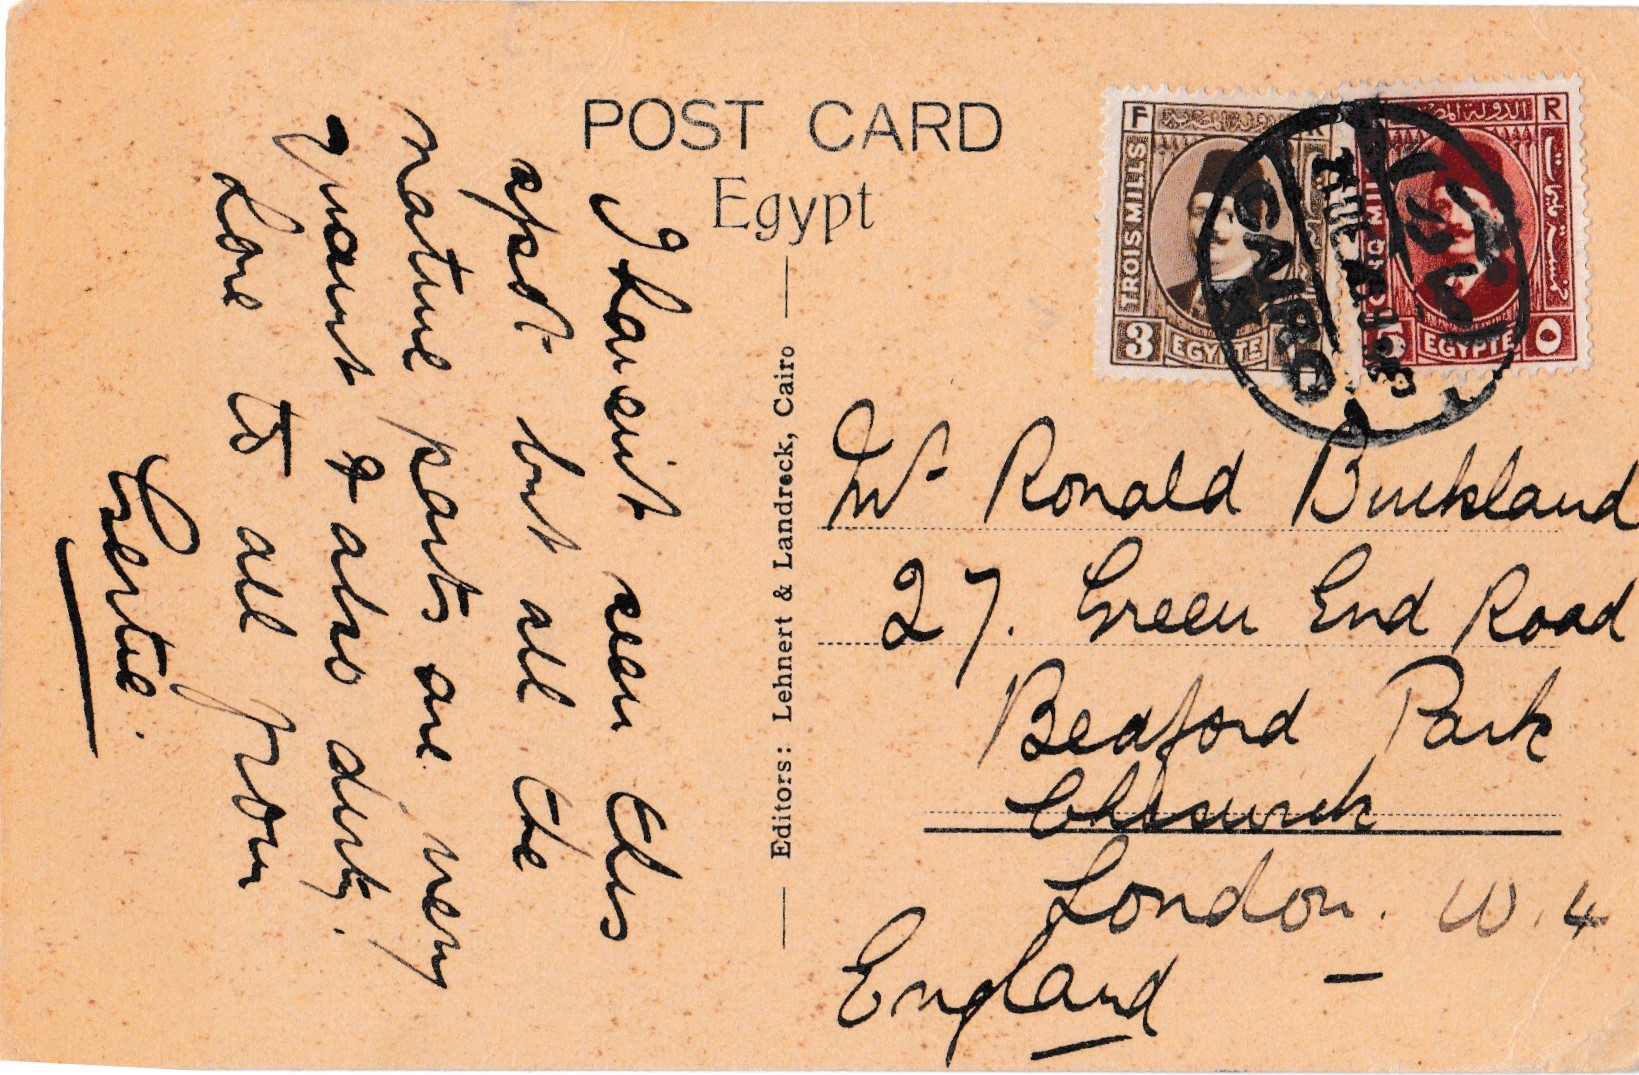 POST CARD
Egypt
I havent seen this
spot but all the
native parts are very
quaint & also dirty.
Love to all from
Gertie.
Editors: Lehnert & Landreck, Cairo
F R
TROIS MILLS
3 EGYPTE
R
الدولة المصرية
CINQ MILLS
5 EGYPTE ٥
CAIRO
Mr Ronald Buckland
27. Green End Road
Bedford Park
Chiswick
London. W.4
England